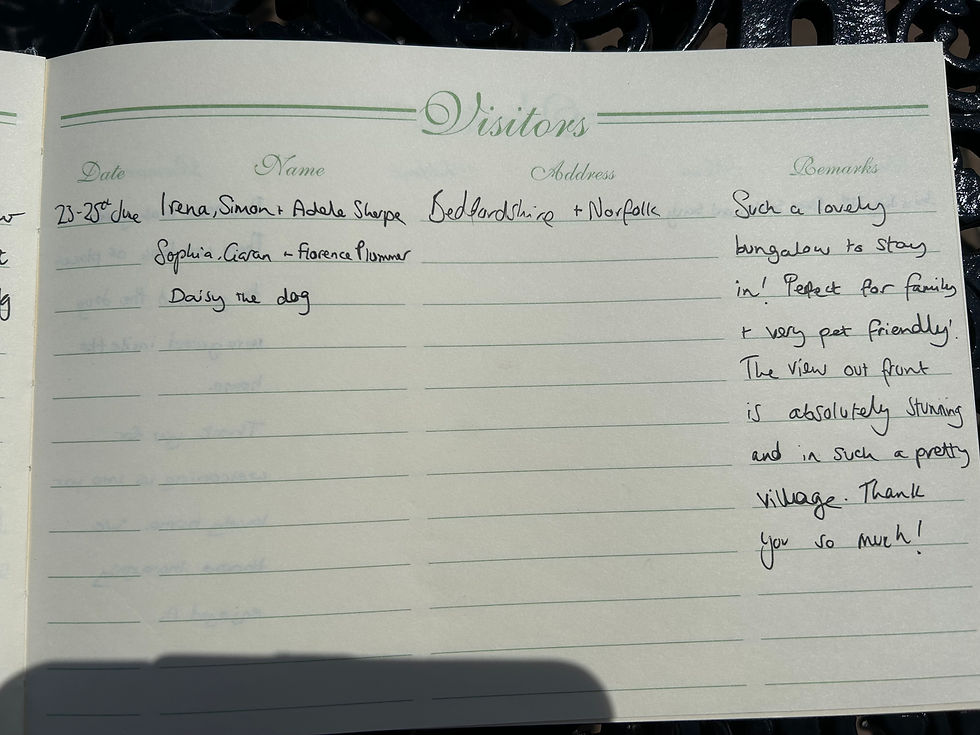 Visitors
Date Name Address Remarks
23-25th Irena, Simon + Adele Sharpe Bedfordshire + Norfolk Such a lovely
Sophia, Ciaran + Florence Plummer bungalow to stay
Daisy the dog in! Pefect for family
+ very pet friendly!
The view out front
is absolutely stunning
and in such a pretty
village. Thank
you so much!